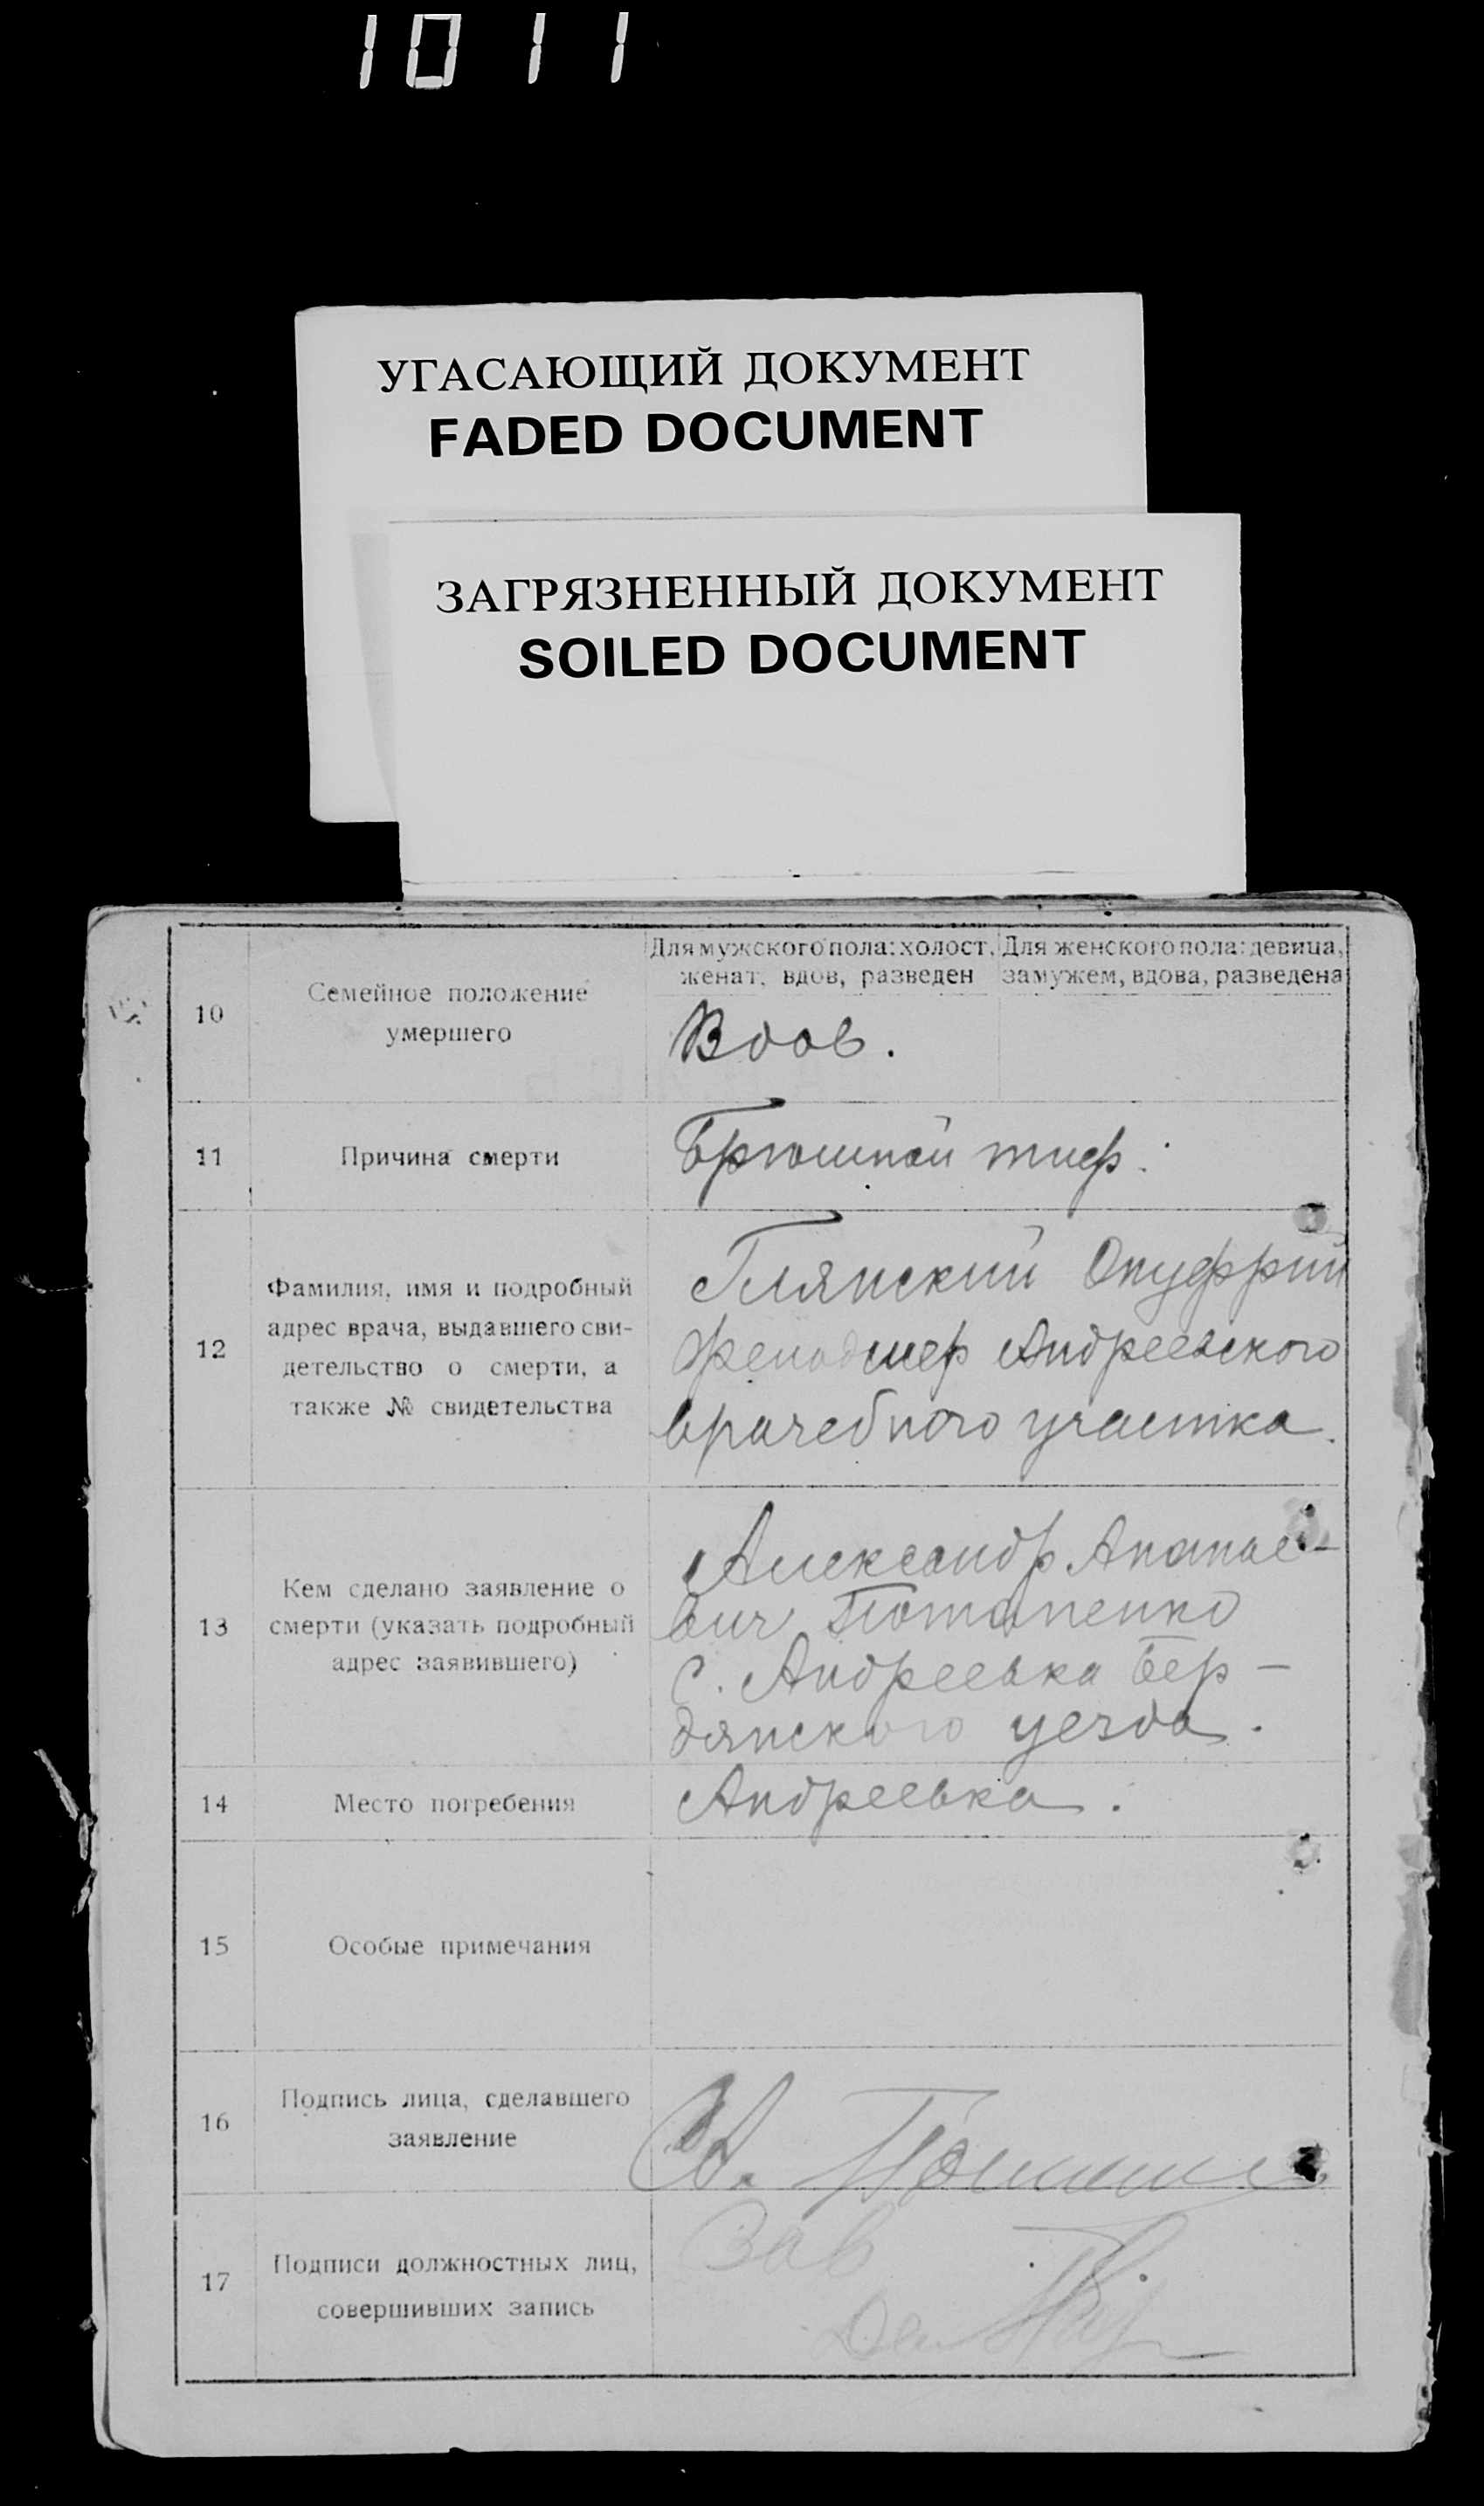 1011
УГАСАЮЩИЙ ДОКУМЕНТ
FADED DOCUMENT
ЗАГРЯЗНЕННЫЙ ДОКУМЕНТ
SOILED DOCUMENT
10
Семейное положение
умершего
Для мужского пола: холост,
женат, вдов, разведен
Для женского пола: девица,
замужем, вдова, разведена
Вдов.
11
Причина смерти
Брюшной тиф.
12
Фамилия, имя и подробный
адрес врача, выдавшего сви-
детельство о смерти, а
также № свидетельства
Глянский Онуфрий
Андреевского
врачебного участка.
13
Кем сделано заявление о
смерти (указать подробный
адрес заявившего)
Александр Апанас-
вич Потапенко
с. Андреевка Бер-
дянского уезда.
14
Место погребения
Андреевка.
15
Особые примечания
16
Подпись лица, сделавшего
заявление
А.
17
Подписи должностных лиц,
совершивших запись
Зав